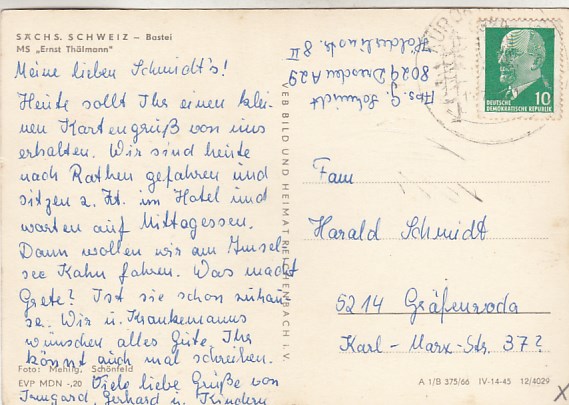 SÄCHS. SCHWEIZ – Bastei
MS „Ernst Thälmann"
Meine lieben Schmidt's!
Heute sollt Ihr einen klei-
nen Kartengruß von uns
erhalten. Wir sind heute
nach Rathen gefahren und
sitzen z. Zt. im Hotel und
warten auf Mittagessen.
Dann wollen wir am Amsel-
see Kahn fahren. Was macht
Grete? Ist sie schon zuhau-
se. Wir u. Krankemanns
wünschen alles Gute, Ihr
könnt auch mal schreiben.
Viele liebe Grüße von
Irmgard, Gerhard u. Kindern
Foto: Mehlig, Schönfeld
EVP MDN -,20
VEB BILD UND HEIMAT REICHENBACH I. V.
Abs. G. Schmidt
8029 Dresden A29
Hölderlinstr. 8 II
DEUTSCHE
DEMOKRATISCHE REPUBLIK
10
Fam
Harald Schmidt
5214 Gräfenroda
Karl-Marx-Str. 37?
A 1/B 375/66 IV-14-45 12/4029
X